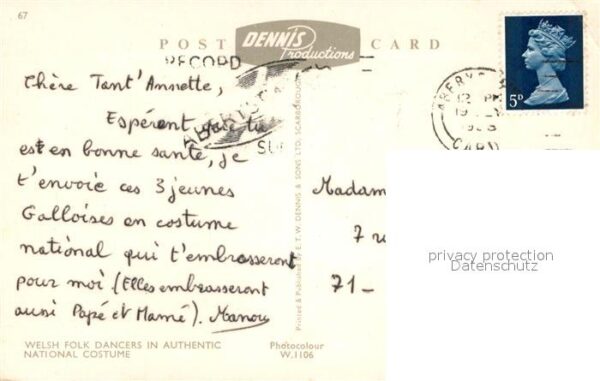 67
POST CARD
DENNIS
Productions
RECORD
5P
12 PM
Chère Tant' Annette,
Espérant que tu
est en bonne santé, je
t'envoie ces 3 jeunes
Galloises en costume
national qui t'embrasseront
pour moi (Elles embrasseront
aussi Papé et Mamé). Manou
Madam
7 r
71_
privacy protection
Datenschutz
Printed & Published by E.T.W. DENNIS & SONS LTD. SCARBOROUGH
WELSH FOLK DANCERS IN AUTHENTIC
NATIONAL COSTUME
Photocolour
W.1106